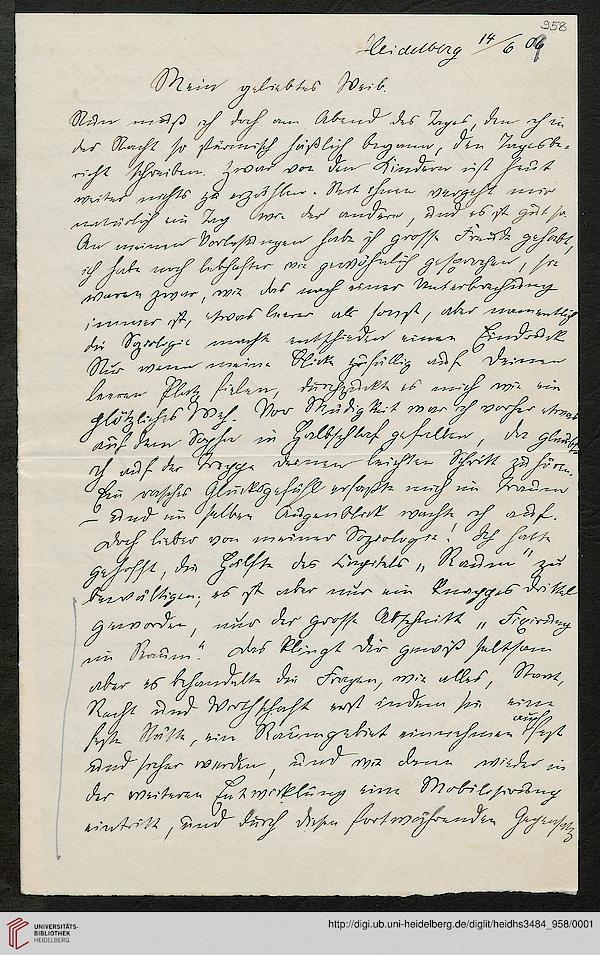 958
Heidelberg 14/6 06
Mein geliebtes Weib.
Nun muß ich doch am Abend des Tages, den ich in
der Nacht so stürmisch häßlich begann, den Tagesbe-
richt schreiben. Zwar von den Kindern ist heut
weiter nichts zu erzählen. Mit ihnen vergeht mir
natürlich ein Tag wie der andere, und es ist gut so.
An meinen Vorlesungen habe ich grosse Freude gehabt,
ich habe noch lebhafter wie gewöhnlich gesprochen, sie
waren zwar, wie das nach einer Unterbrechung
immer ist, etwas leerer als sonst, aber namentlich
die Soziologie machte entschieden einen Eindruck
Nur wenn meine Blicke zufällig auf Deinen
leeren Platz fielen, durchzuckte es mich wie ein
plötzliches Weh. Vor Müdigkeit war ich vorher etwas
auf dem Sopha in Halbschlaf gefallen, da glaubte
ich auf der Treppe Deinen leichten Schritt zu hören.
Ein rasches Glücksgefühl erfaßte mich im Traum
– und im selben Augenblick wachte ich auf.
Doch lieber von meiner Soziologie! Ich hatte
gehofft, die Hälfte des Kapitels „Raum" zu
bewältigen; es ist aber nur ein knappes Drittel
geworden, nur der grosse Abschnitt „Fixirung
im Raum". Das klingt Dir gewiß seltsam
aber es behandelte die Fragen, wie alles, Staat,
Recht und Wirthschaft erst indem sie eine
feste Stätte, ein Raumgebiet einnehmen auch fest
und sicher werden, und wie dann wieder in
der weiteren Entwicklung eine Mobilisirung
eintritt, und durch diesen fortwährenden Gegensatz
UNIVERSITÄTS-
BIBLIOTHEK
HEIDELBERG
http://digi.ub.uni-heidelberg.de/diglit/heidhs3484_958/0001